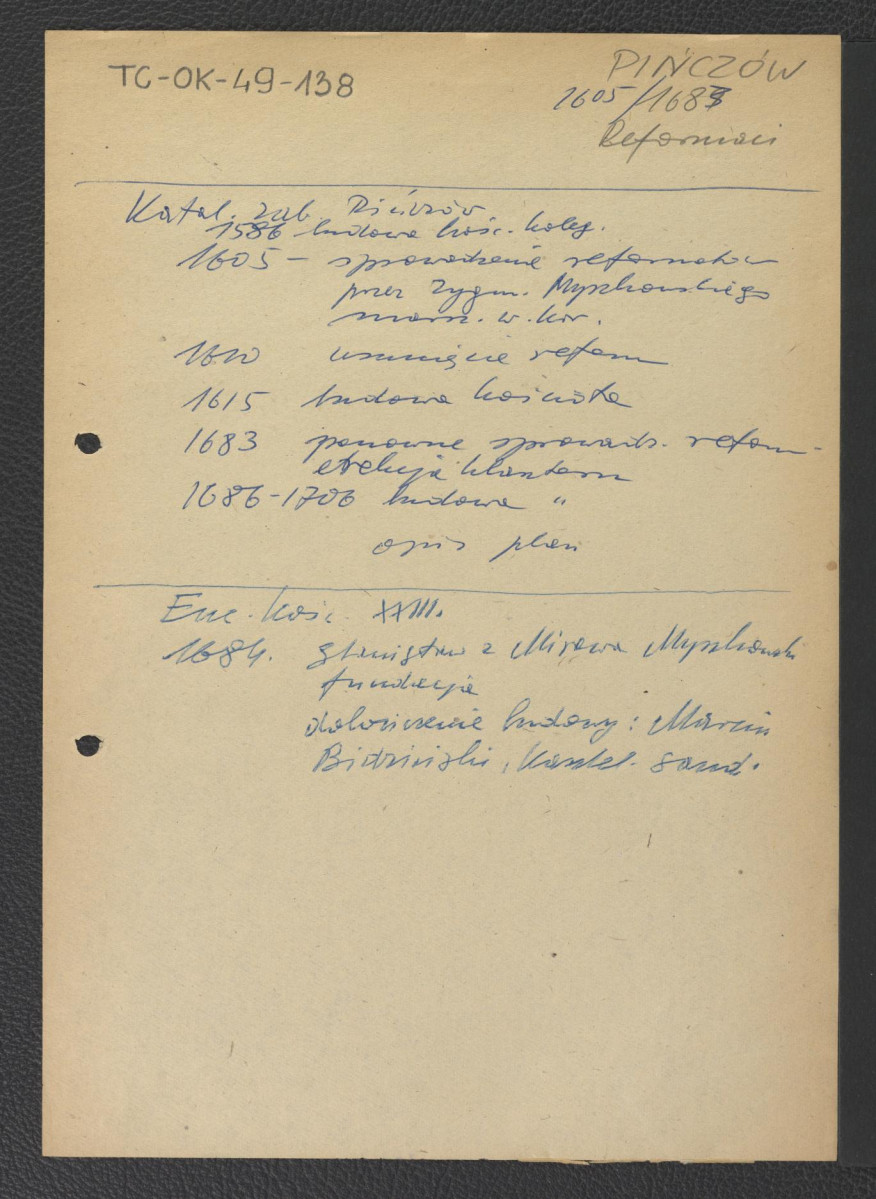 TC-OK-49-138
PIŃCZÓW
1605/1683
Reformaci
Katal. zab. Pińczów
1586 budowa kośc. koleg.
1605 – sprowadzenie reformatów
przez Zygm. Myszkowskiego
marsz. w. kor.
1610 usunięcie reform
1615 budowa kościoła
1683 ponowne sprowadz. reform-
erekcja klasztoru
1686-1706 budowa "
opis plan
Enc. kośc. XXIII.
1684. Stanisław z Mirowa Myszkowski
fundacja
dokończenie budowy: Marcin
Bidziński, kasztel. sand.